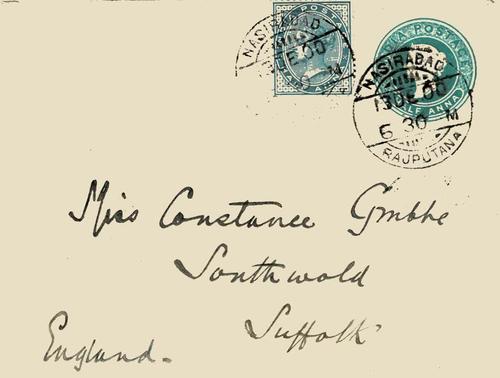 INDIA POSTAGE
HALF ANNA
NASIRABAD
DE 00
M
INDIA POSTAGE
HALF ANNA
NASIRABAD
13 DE 00
6 30 M
RAJPUTANA
Miss Constance
Southwold
Suffolk
England.